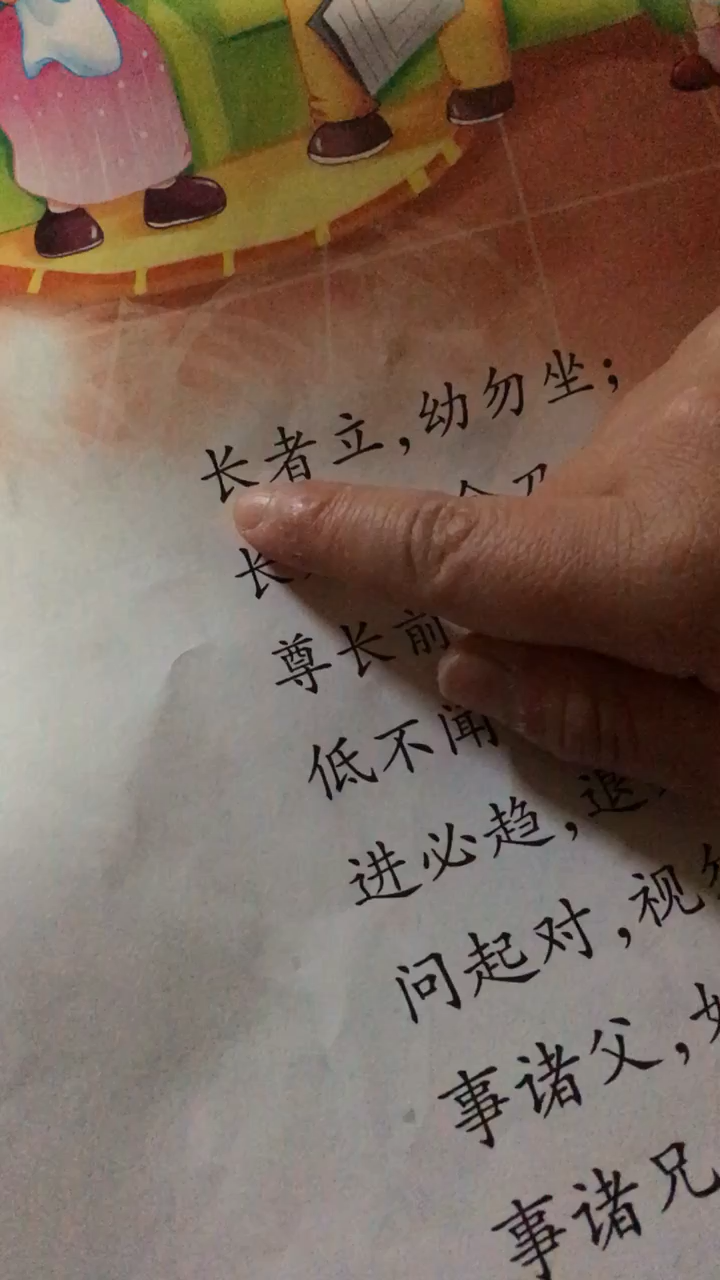 长者立，幼勿坐；
长
尊长前
低不闻
进必趋，退
问起对，视
事诸父，
事诸兄